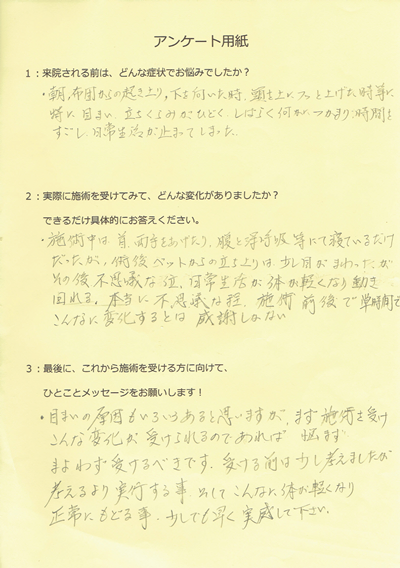 アンケート用紙
1：来院される前は、どんな症状でお悩みでしたか？
・朝、布団からの起き上り、下を向いた時、頭を上に フッと上げた時等に
特に 目まい、立ちくらみがひどく、しばらく何かにつかまり時間を
すごし、日常生活が止まってしまった。
2：実際に施術を受けてみて、どんな変化がありましたか？
できるだけ具体的にお答えください。
・施術中は 首、両手をあげたり、腹と深呼吸等にて寝ているだけ
だったが、術後ベットからの立ち上りは、少し目がまわったが
その後 不思議な位、日常生活が 体が軽くなり動き
回れる。本当に不思議な程、施術前後で 短時間で
こんなに変化するとは 感謝しかない
3：最後に、これから施術を受ける方に向けて、
ひとことメッセージをお願いします！
・目まいの原因もいろいろあると思いますが、まず施術を受け
こんな変化が受けられるのであれば 悩まず
まよわず受けるべきです。受ける前は少し考えましたが
考えるより実行する事 そして こんなに体が軽くなり
正常にもどる事、少しでも早く実感して下さい。